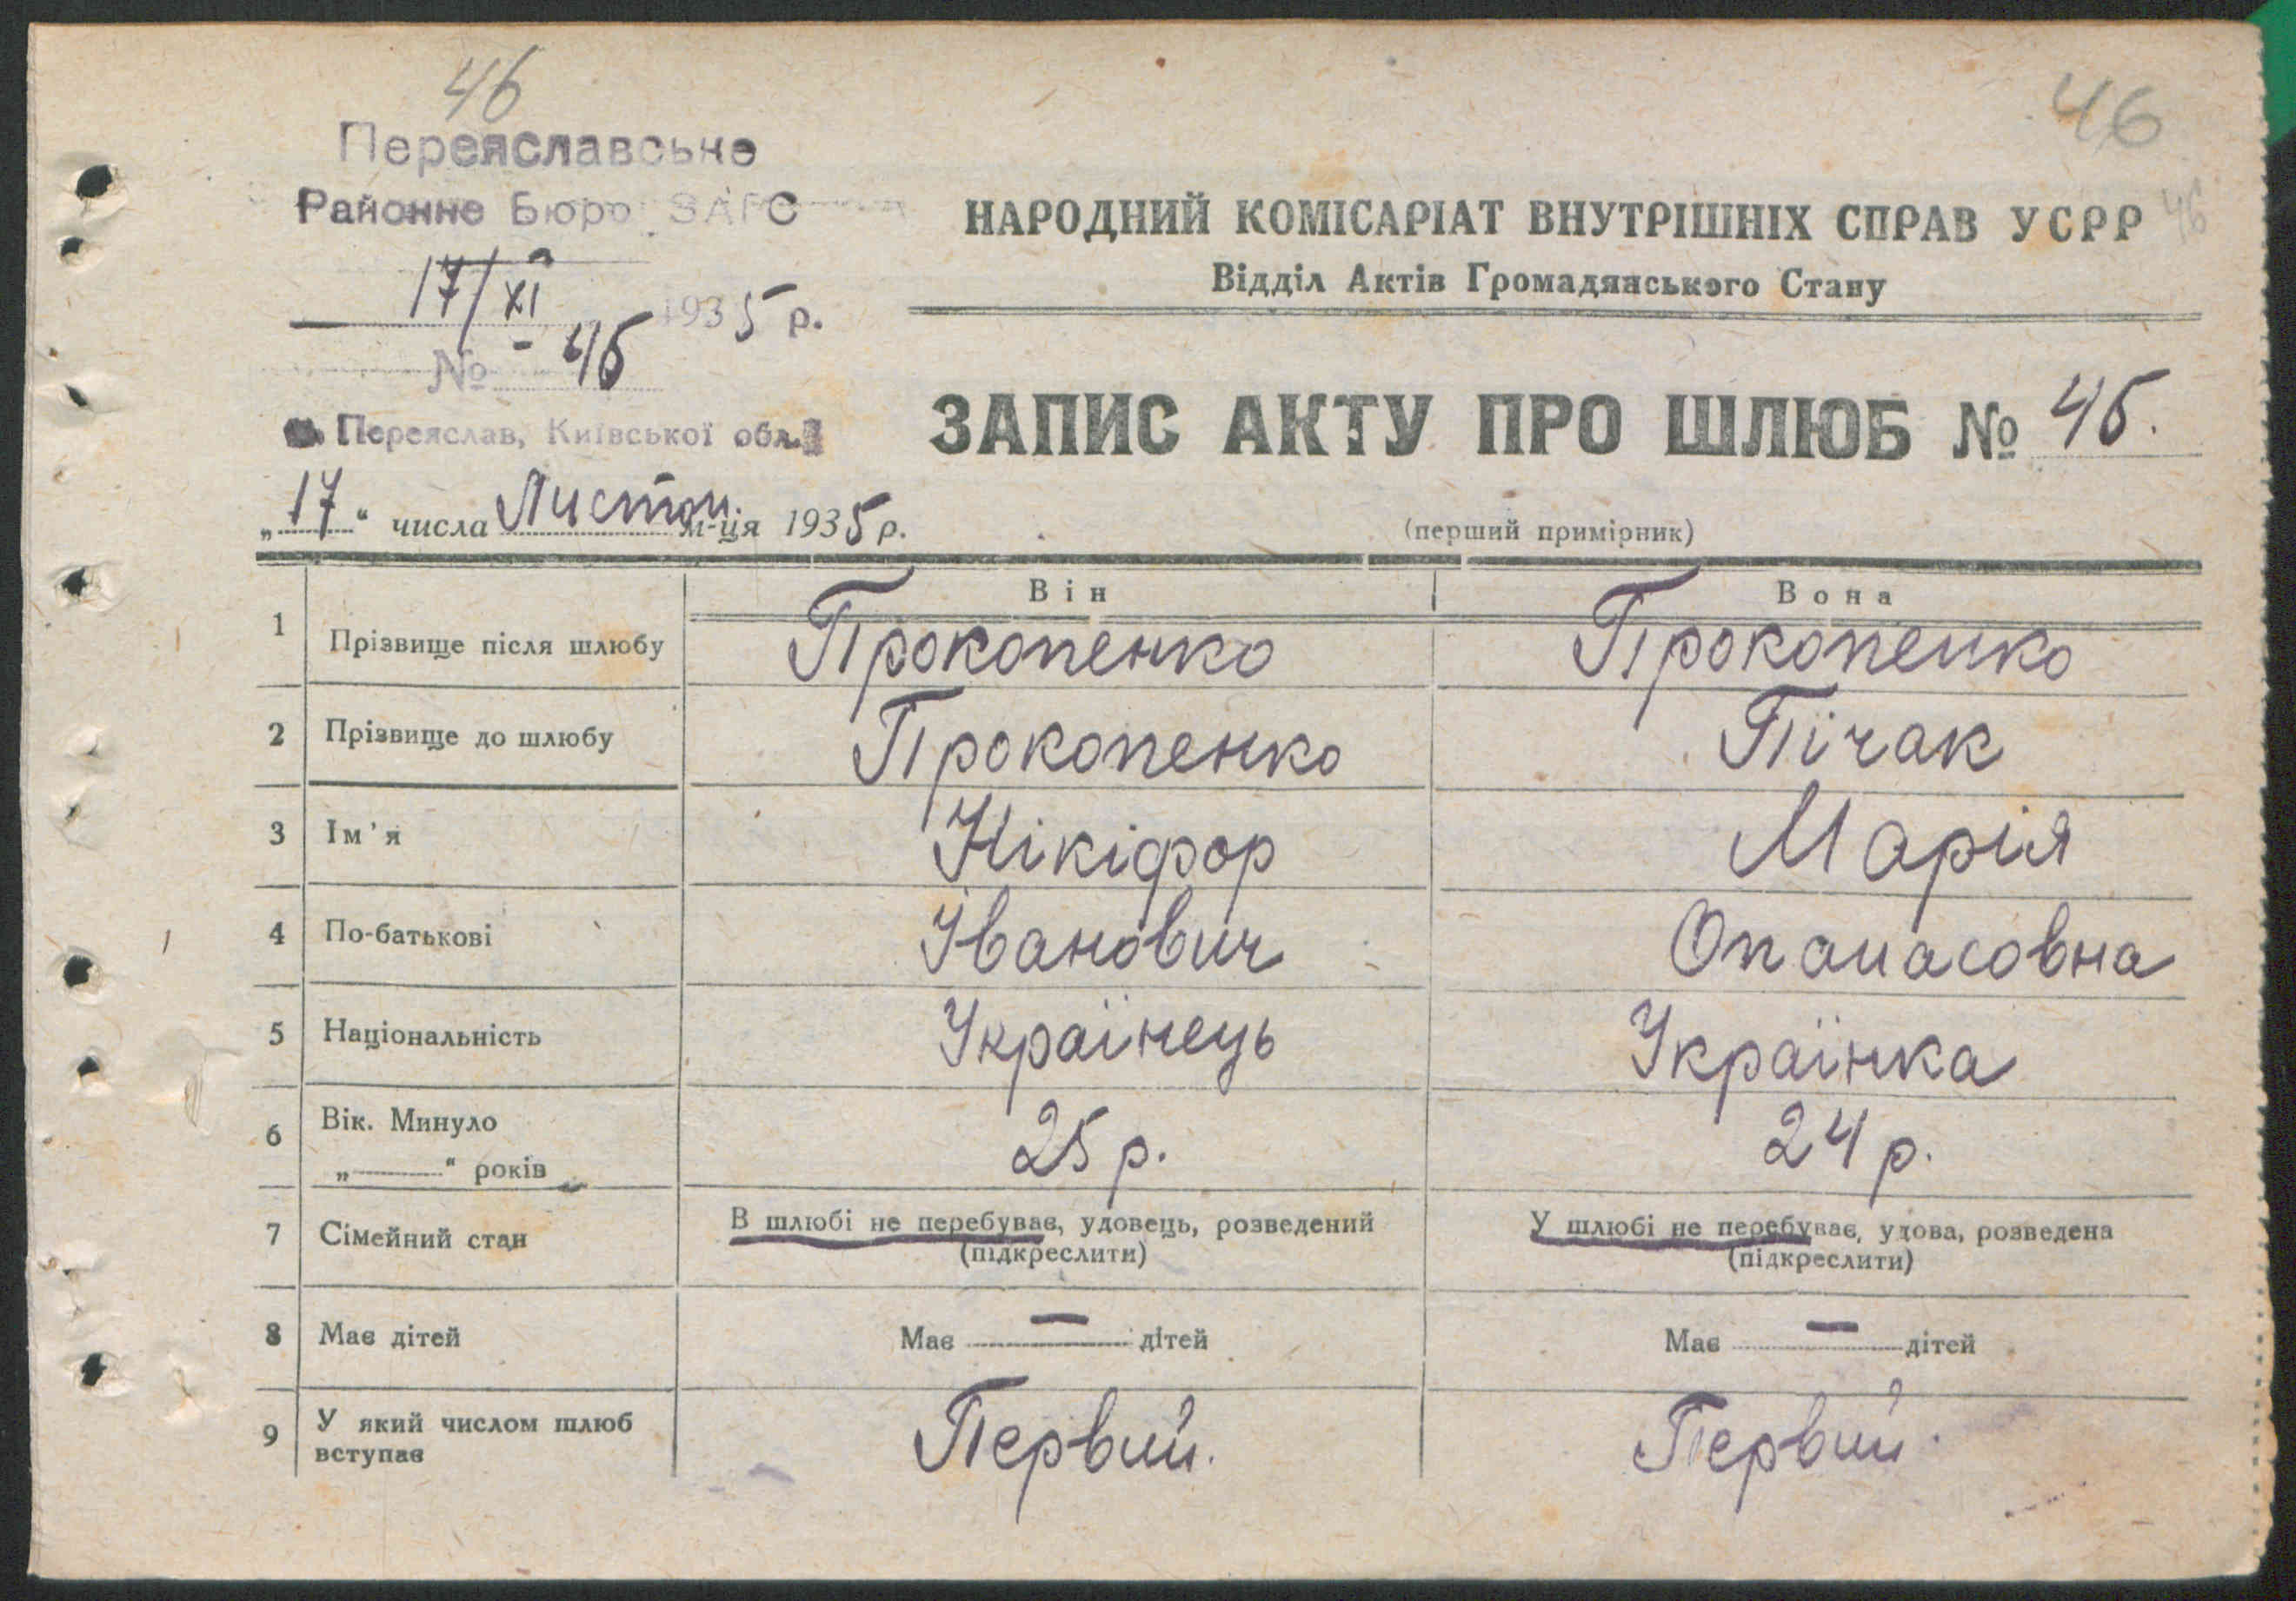 46
46
Переяславське
Районне Бюро ЗАГС
46
17/XI 1935 р.
№ - 46
м. Переяслав, Київської обл.
„17“ числа Листоп. м-ця 1935 р.
НАРОДНИЙ КОМІСАРІАТ ВНУТРІШНІХ СПРАВ УСРР
Відділ Актів Громадянського Стану
ЗАПИС АКТУ ПРО ШЛЮБ № 46.
(перший примірник)
Він Вона
1 Прізвище після шлюбу Прокопенко Прокопенко
2 Прізвище до шлюбу Прокопенко Пічак
3 Ім'я Нікіфор Марія
4 По-батькові Іванович Опанасовна
5 Національність Українець Українка
6 Вік. Минуло
„——“ років 25 р. 24 р.
7 Сімейний стан В шлюбі не перебуває, удовець, розведений У шлюбі не перебуває, удова, розведена
(підкреслити) (підкреслити)
8 Має дітей Має — дітей Має — дітей
9 У який числом шлюб
вступає Первий. Первий.